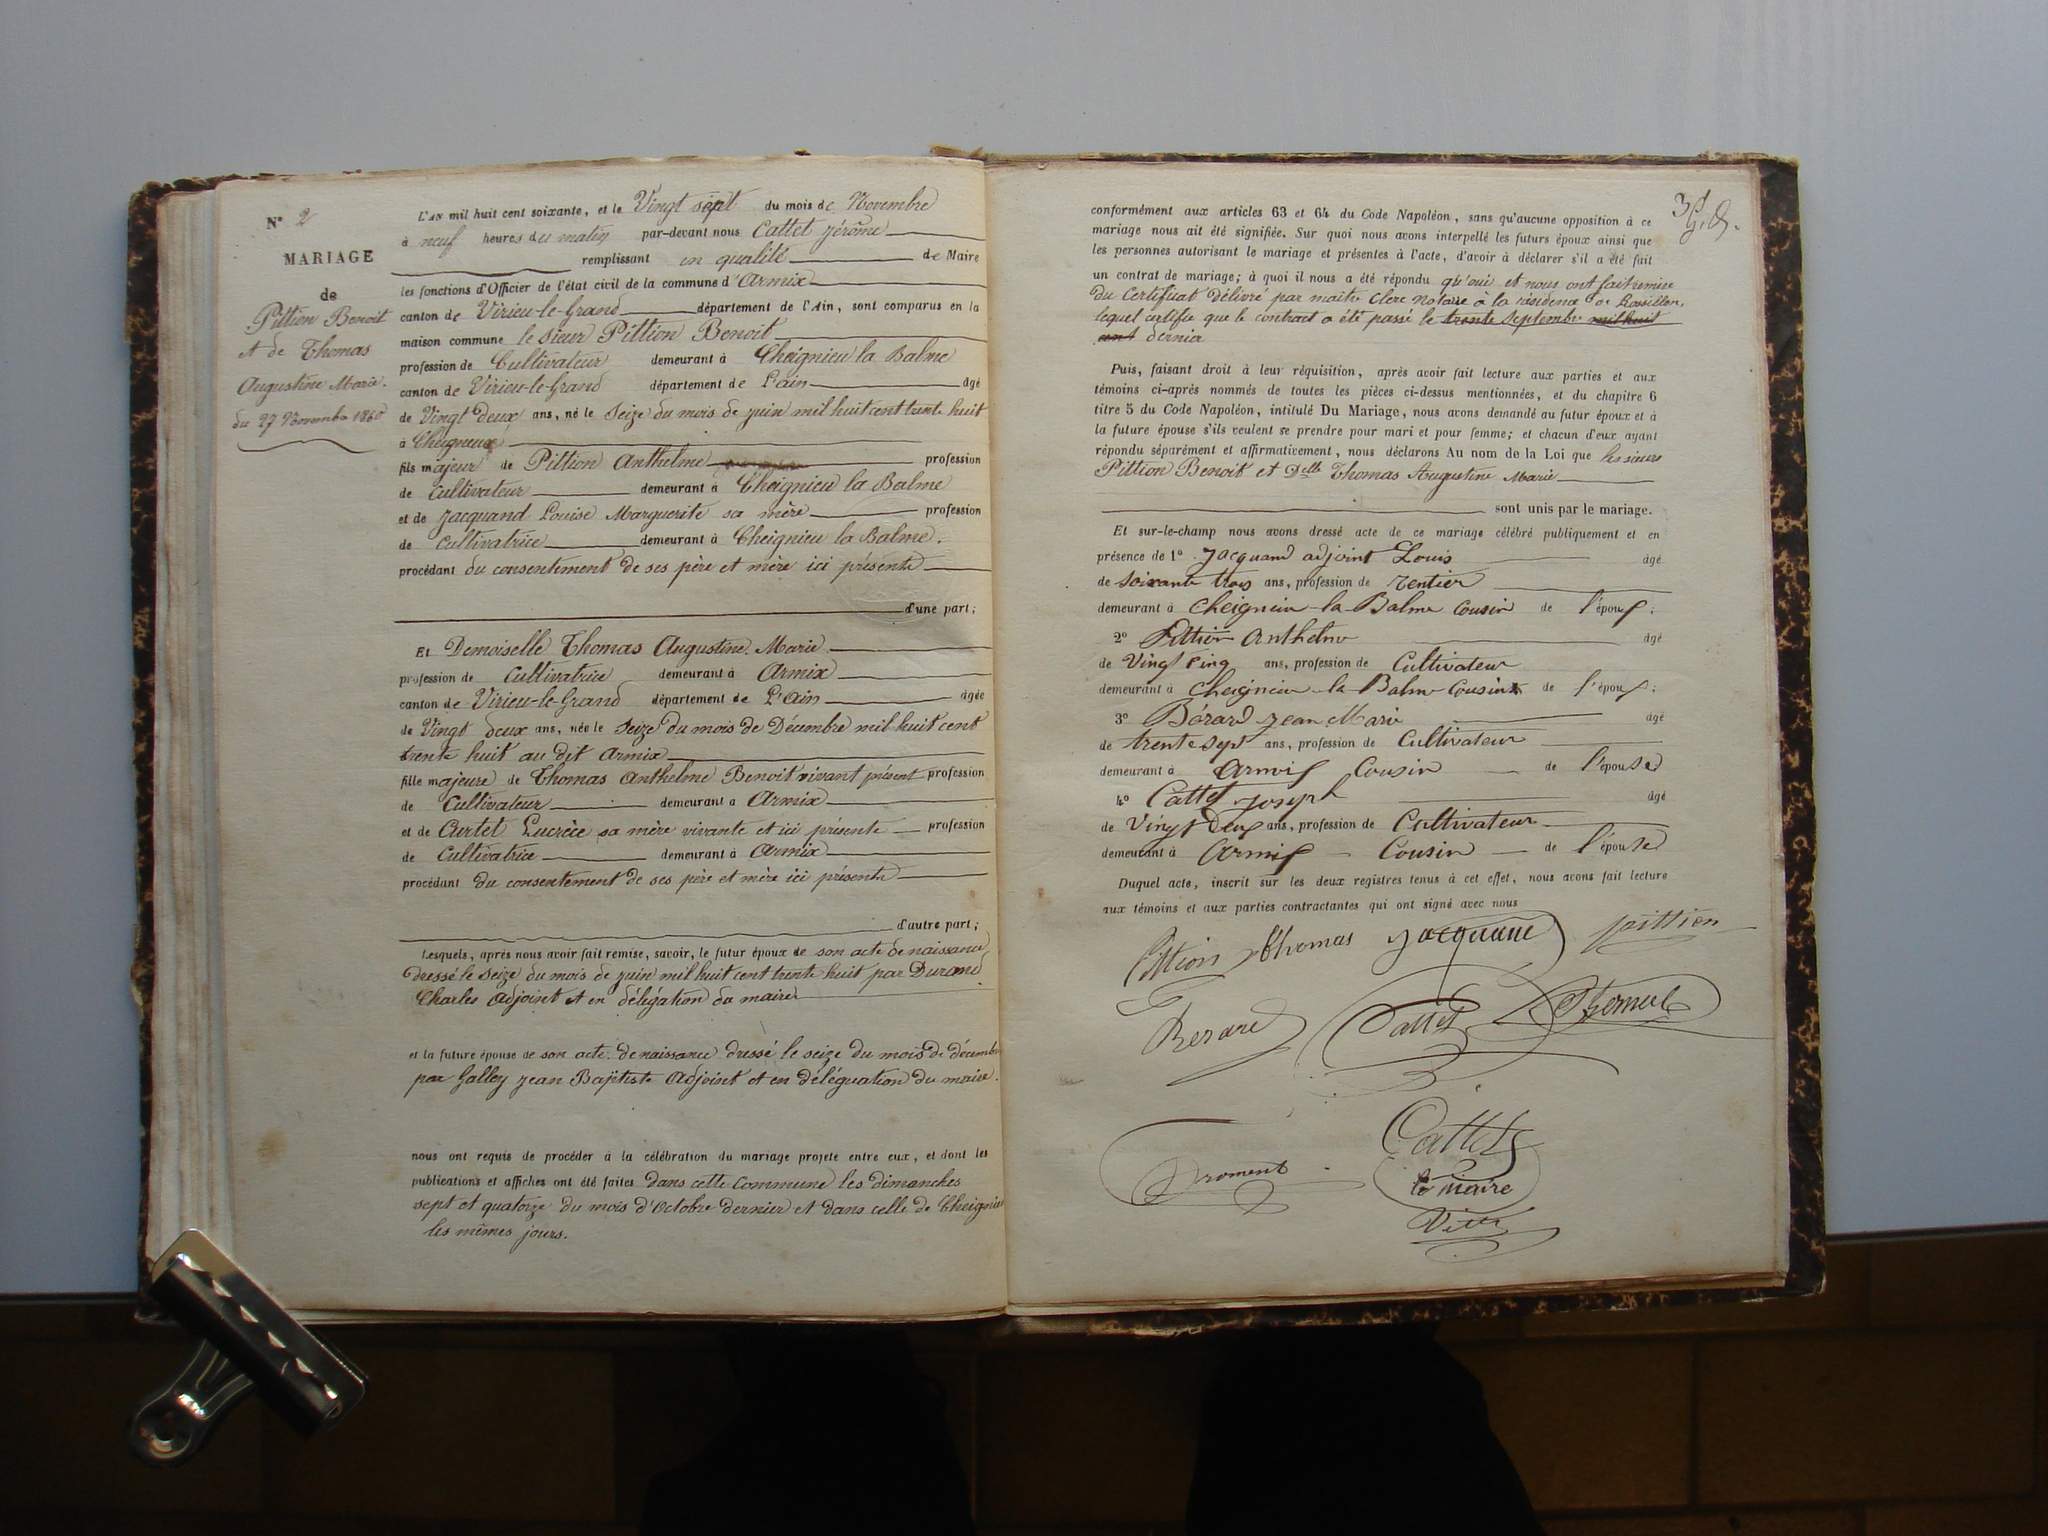 N° 2
MARIAGE
de
Pittion Benoit
et de Thomas
Augustine Marie.
du 27 Novembre 1860
L'AN mil huit cent soixante, et le Vingt sept du mois de Novembre
à neuf heures du matin par-devant nous Cattet Jérôme
remplissant en qualité de Maire
les fonctions d'Officier de l'état civil de la commune d'Armix
canton de Virieu-le-Grand département de l'Ain, sont comparus en la
maison commune le sieur Pittion Benoit
profession de Cultivateur demeurant à Cheignieu la Balme
canton de Virieu-le-Grand département de L'ain âgé
de Vingt deux ans, né le Seize du mois de juin mil huit cent trente huit
à Cheigneux
fils majeur de Pittion Anthelme profession
de Cultivateur demeurant à Cheignieu la Balme
et de Jacquand Louise Marguerite sa mère profession
de Cultivatrice demeurant à Cheignieu la Balme.
procédant du consentement de ses père et mère ici présents
d'une part;
Et Demoiselle Thomas Augustine Marie
profession de Cultivatrice demeurant à Armix
canton de Virieu-le-Grand département de L'ain âgée
de Vingt deux ans, née le Seize du mois de Décembre mil huit cent
trente huit au dit Armix
fille majeure de Thomas Anthelme Benoit vivant présent profession
de Cultivateur demeurant à Armix
et de Curtet Lucrèce sa mère vivante et ici présente profession
de Cultivatrice demeurant à Armix
procédant du consentement de ses père et mère ici présents
d'autre part;
Lesquels, après nous avoir fait remise, savoir, le futur époux de son acte de naissance
dressé le seize du mois de juin mil huit cent trente huit par Durand
Charles Adjoint et en délégation du maire
et la future épouse de son acte de naissance dressé le seize du mois de décembre
par Galley Jean Baptiste Adjoint et en déléguation du maire.
nous ont requis de procéder à la célébration du mariage projeté entre eux, et dont les
publications et affiches ont été faites dans cette Commune les dimanches
sept et quatorze du mois d'Octobre dernier et dans celle de Cheignieu
les mêmes jours.
conformément aux articles 63 et 64 du Code Napoléon, sans qu'aucune opposition à ce
mariage nous ait été signifiée. Sur quoi nous avons interpellé les futurs époux ainsi que
les personnes autorisant le mariage et présentes à l'acte, d'avoir à déclarer s'il a été fait
un contrat de mariage; à quoi il nous a été répondu qu'oui et nous ont fait remise
du Certificat délivré par maitre Clerc Notaire à la résidence de Rossillon,
lequel certifie que le contract a été passé le trente Septembre mil huit
cent dernier
Puis, faisant droit à leur réquisition, après avoir fait lecture aux parties et aux
témoins ci-après nommés de toutes les pièces ci-dessus mentionnées, et du chapitre 6
titre 5 du Code Napoléon, intitulé Du Mariage, nous avons demandé au futur époux et à
la future épouse s'ils veulent se prendre pour mari et pour femme; et chacun d'eux ayant
répondu séparément et affirmativement, nous déclarons Au nom de la Loi que les sieurs
Pittion Benoit et Delle Thomas Augustine Marie
sont unis par le mariage.
Et sur-le-champ nous avons dressé acte de ce mariage célébré publiquement et en
présence de 1° Jacquand adjoint Louis âgé
de soixante trois ans, profession de rentier
demeurant à Cheignieu-la-Balme Cousin de l'époux;
2° Pittion Anthelme âgé
de Vingt cinq ans, profession de Cultivateur
demeurant à Cheignieu-la-Balme Cousin de l'époux;
3° Bérard Jean Marie âgé
de trente sept ans, profession de Cultivateur
demeurant à Armix Cousin de l'épouse
4° Cattet Joseph âgé
de Vingt Deux ans, profession de Cultivateur
demeurant à Armix Cousin de l'épouse
Duquel acte, inscrit sur les deux registres tenus à cet effet, nous avons fait lecture
aux témoins et aux parties contractantes qui ont signé avec nous
Pittion Thomas Jacquand pittion
Berard Cattet
Froment
Cattet
le maire